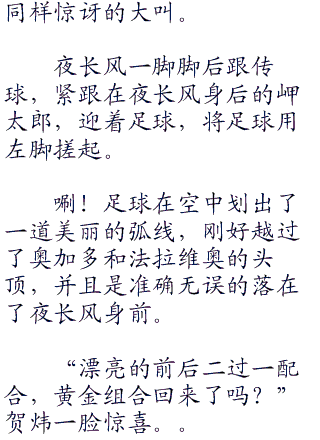 同样惊讶的大叫。
夜长风一脚脚后跟传
球，紧跟在夜长风身后的岬
太郎，迎着足球，将足球用
左脚搓起。
唰！足球在空中划出了
一道美丽的弧线，刚好越过
了奥加多和法拉维奥的头
顶，并且是准确无误的落在
了夜长风身前。
“漂亮的前后二过一配
合，黄金组合回来了吗？”
贺炜一脸惊喜。。